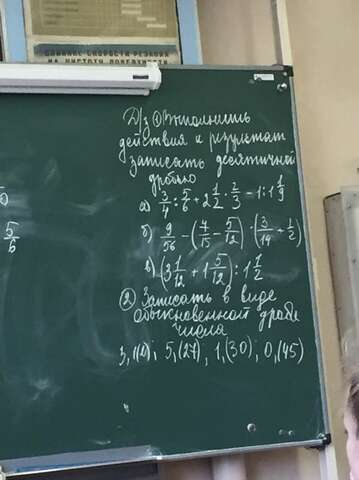 ВЛИЯНИЕ СКОРОСТИ РЕЗКОНА
НА ЧИСТОТУ ПОВЕРХНОСТИ
Д/з ① Выполнить
действия и результат
записать десятичной
дробью
а) 3/4 : 5/6 + 2 1/2 · 2/3 − 1 : 1 1/9
б) 9/56 − (7/15 − 5/12) : (3/14 + 1/2)
в) (3 1/12 + 1 5/12) : 1 1/2
② Записать в виде
обыкновенной дроби
числа
5, (27); 1, (30); 0, (45)
5/6